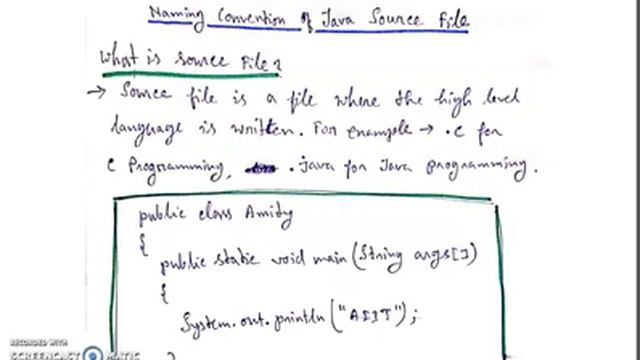 Naming Convention of Java Source File
What is source File?
→ Source file is a file where the high level
language is written. For example → .C for
C Programming, .java for Java programming.
public class Amity
{
public static void main (String args[])
{
System.out.println("AIIT");
}
RECORDED WITH
SCREENCAST MATIC